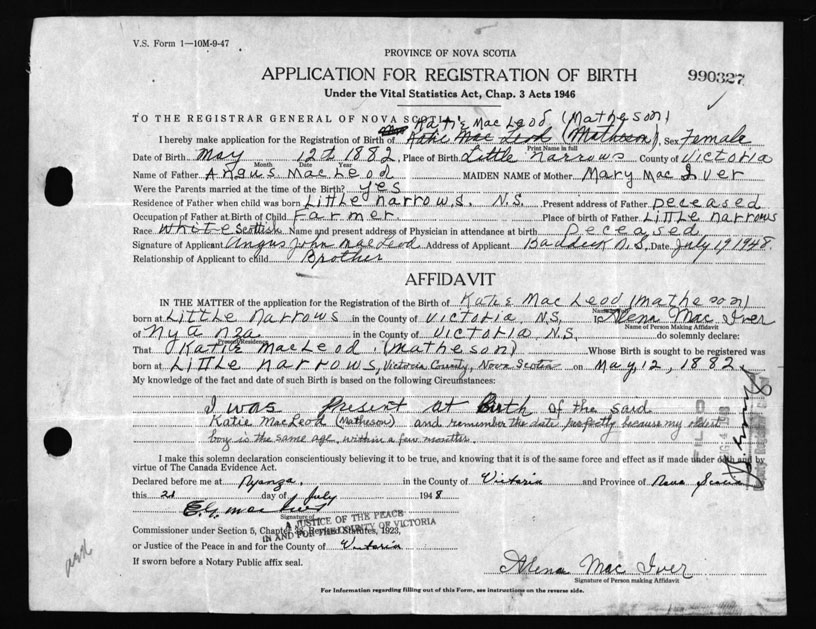 V.S. Form 1—10M-9-47
PROVINCE OF NOVA SCOTIA
APPLICATION FOR REGISTRATION OF BIRTH
990327
Under the Vital Statistics Act, Chap. 3 Acts 1946
TO THE REGISTRAR GENERAL OF NOVA SCOTIA
Katie Mac Leod (Matheson)
I hereby make application for the Registration of Birth of Katie Mac Leod (Matheson), Sex Female
Print Name in full
Date of Birth May 12th 1882, Place of Birth Little Narrows County of Victoria
Month Date Year
Name of Father Angus MacLeod MAIDEN NAME of Mother Mary Mac Iver
Were the Parents married at the time of the Birth? yes
Residence of Father when child was born Little Narrows. N.S. Present address of Father Deceased
Occupation of Father at Birth of Child Farmer. Place of birth of Father Little Narrows
Race White Scottish Name and present address of Physician in attendance at birth Deceased
Signature of Applicant Angus John MacLeod Address of Applicant Baddeck N.S. Date July 19 1948.
Relationship of Applicant to child Brother
AFFIDAVIT
IN THE MATTER of the application for the Registration of the Birth of Katie Mac Leod (Matheson)
born at Little Narrows in the County of Victoria, N.S. I, Alena Mac Iver
Name of Person Making Affidavit
of Nyanza in the County of Victoria N.S. do solemnly declare:
Present Residence
That Katie MacLeod, (Matheson) Whose Birth is sought to be registered was
born at Little Narrows, Victoria County, Nova Scotia on May, 12, 1882.
My knowledge of the fact and date of such Birth is based on the following Circumstances:
I was present at Birth of the said
Katie MacLeod (Matheson) and remember the date perfectly because my oldest
boy is the same age, within a few months.
FILED
I make this solemn declaration conscientiously believing it to be true, and knowing that is of the same force and effect as if made under oath and by
virtue of The Canada Evidence Act.
Declared before me at Nyanza, in the County of Victoria and Province of Nova Scotia
this 21 day of July 1948
Signature of
A JUSTICE OF THE PEACE
IN AND FOR THE COUNTY OF VICTORIA
Commissioner under Section 5, Chapter Revised Statutes, 1923,
or Justice of the Peace in and for the County of Victoria
If sworn before a Notary Public affix seal.
Alena Mac Iver
Signature of Person making Affidavit
For Information regarding filling out of this Form, see instructions on the reverse side.